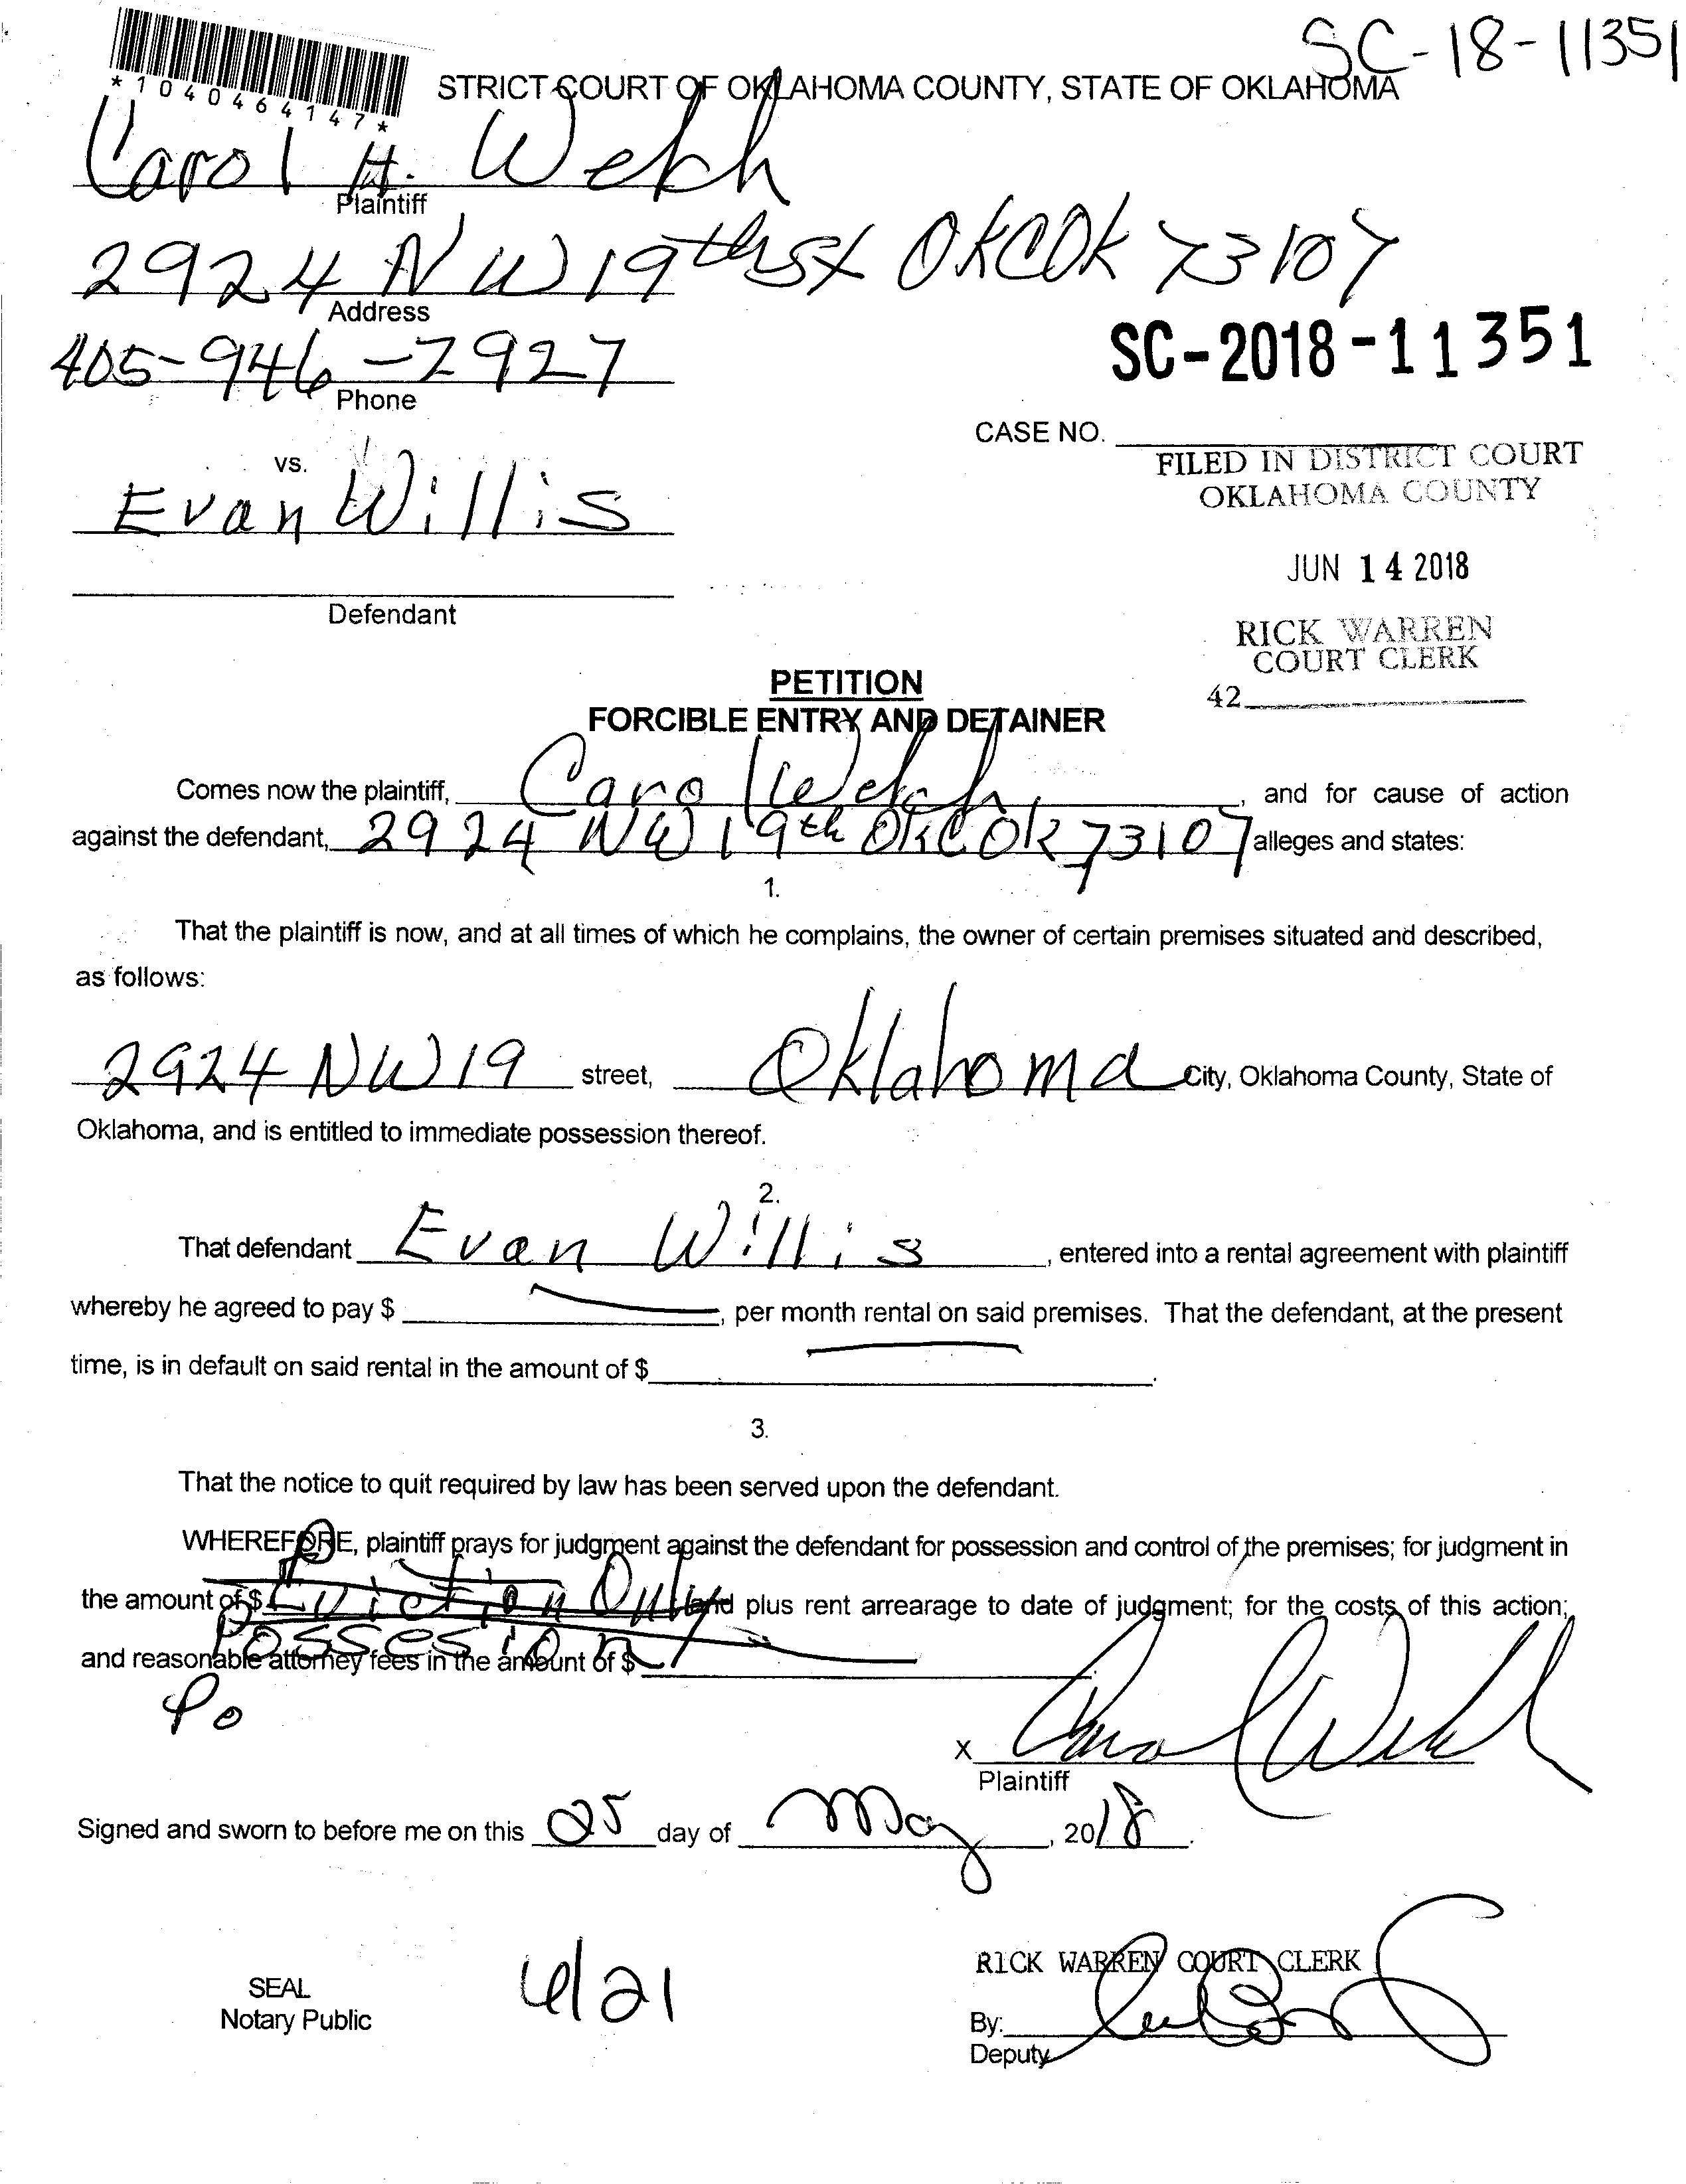 SC-18-11351
*1040464147*
STRICT COURT OF OKLAHOMA COUNTY, STATE OF OKLAHOMA
Carol H. Welch
Plaintiff
2924 NW 19th st OKC OK 73107
Address
405-946-7927
Phone
SC-2018-11351
CASE NO.
FILED IN DISTRICT COURT
OKLAHOMA COUNTY
vs.
Evan Willis
JUN 14 2018
Defendant
RICK WARREN
COURT CLERK
42
PETITION
FORCIBLE ENTRY AND DETAINER
Comes now the plaintiff, Carol Welch, and for cause of action
against the defendant, 2924 NW 19th OKC OK 73107 alleges and states:
1.
That the plaintiff is now, and at all times of which he complains, the owner of certain premises situated and described,
as follows:
2924 NW 19 street, Oklahoma City, Oklahoma County, State of
Oklahoma, and is entitled to immediate possession thereof.
2.
That defendant Evan Willis, entered into a rental agreement with plaintiff
whereby he agreed to pay $ , per month rental on said premises. That the defendant, at the present
time, is in default on said rental in the amount of $ .
3.
That the notice to quit required by law has been served upon the defendant.
WHEREFORE, plaintiff prays for judgment against the defendant for possession and control of the premises; for judgment in
the amount of $ Eviction Only and plus rent arrearage to date of judgment; for the costs of this action;
Possesion
and reasonable attorney fees in the amount of $
Po
x Carol Welch
Plaintiff
Signed and sworn to before me on this 25 day of May, 2018.
RICK WARREN COURT CLERK
SEAL
Notary Public
6/21
By:
Deputy